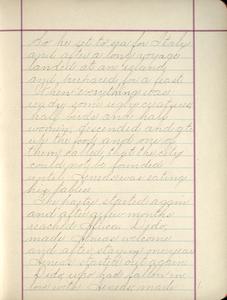 So he set to sea for Italy
and after a long voyage
landed at an island
and prepared for a feast.
When everything was
ready some ugly creatures
half birds and half
women, descended and ate
up the food and one of
them called, that the city
could not be founded
until Aeneas was eating
his tables.
The party started again
and after a few months
reached Africa. Dido,
made Aeneas welcome
and after staying one year
Aeneas started out again
Dido who had fallen in
love with Aeneas made